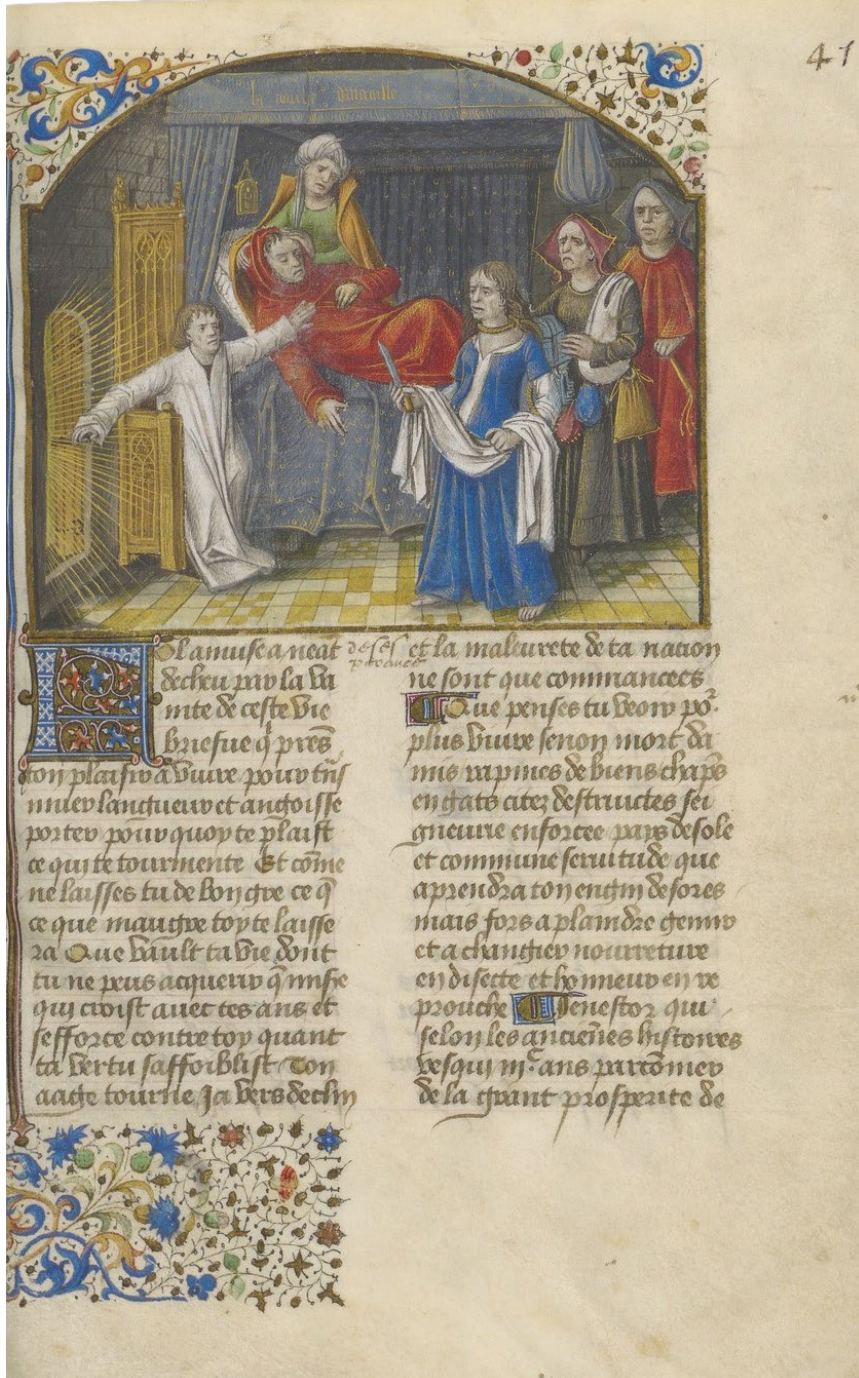 41
la couche denfermete
El amuse a neat
decheu par la va
nite de ceste vie
briefue q̄ prēs
ton plaisir a viure pour tās
muer langueur et angoisse
porter pour quoy te plaist
ce qui te tourmente Et cōme
ne laisses tu de bon gre ce q̄
ce que maugre toy te laisse
ra Que vault ta vie dont
tu ne peus acquerir q̄
qui croist auec tes ans et
sefforce contre toy quant
ta vertu saffoiblist Ton
aage tourne Ja vers declin
de ses
et la maleurete de ta nation
ne sont que commancees
Que penses tu veoir po᷑
plus viure senon mort da
mis rapines de biens chāps
en gats citez destructes sei
gneurie enforcee pays desole
et commune seruitude que
aprendra ton engin desores
mais fors a plaindre gemir
et a changier nourreture
en disecte et honneur en re
prouche Nenestor qui
selon les anciēnes histoires
vesqui iii.ᶜ ans parcōmer
de la grant prosperite de